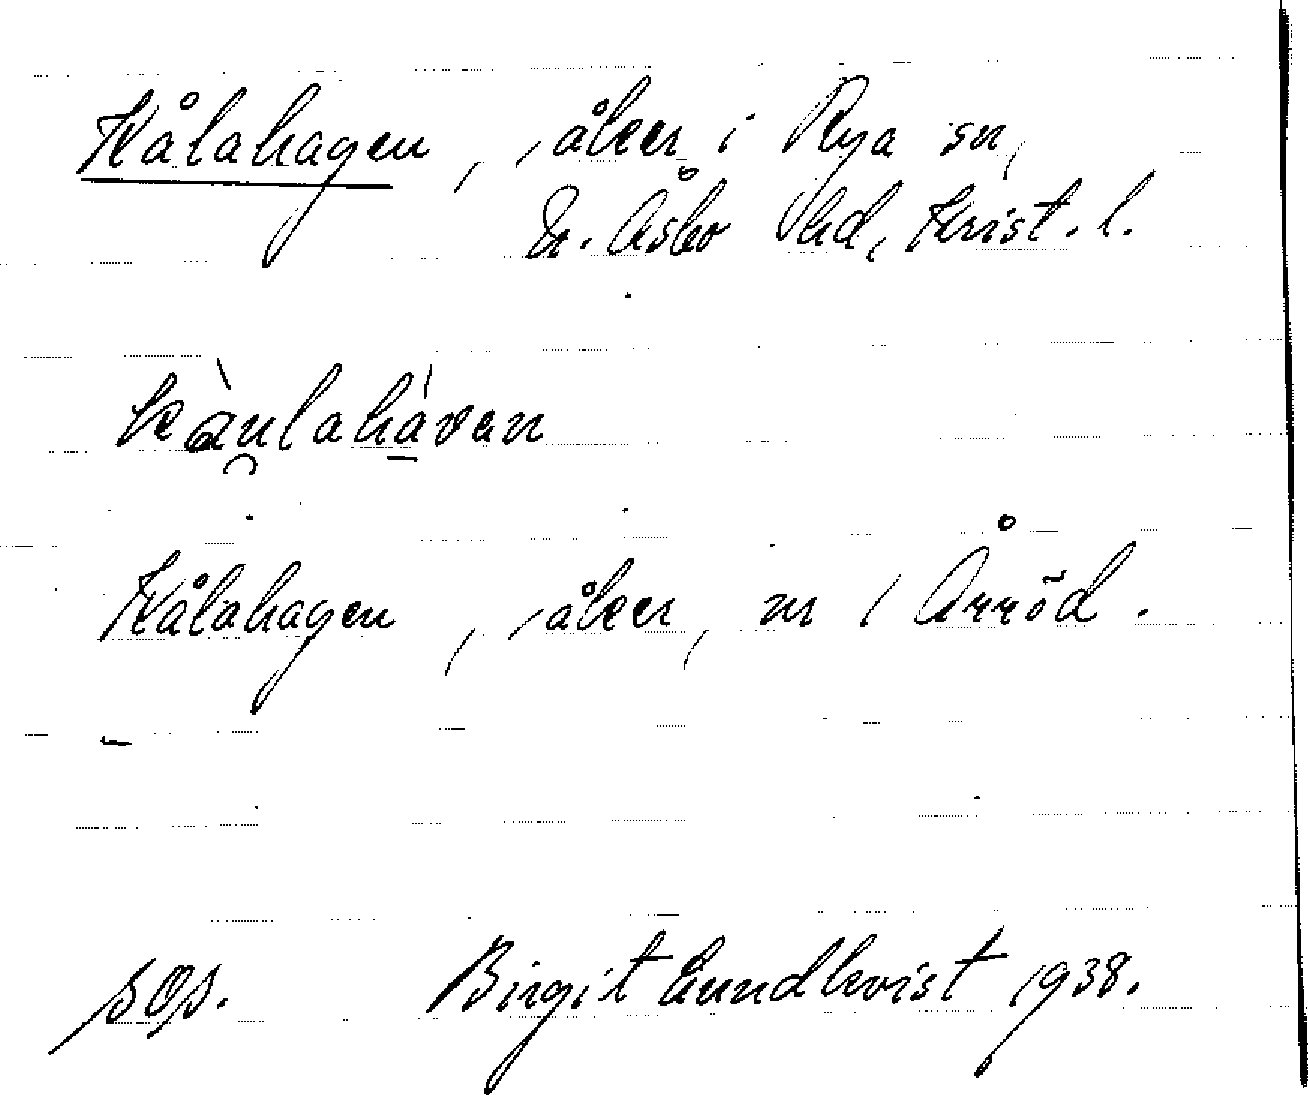 Kålahagen, åker i Rya sn,
N. Åsbo hd, Krist. l.
kàu̯lahá̱ven
Kålahagen, åker, nr 1 Årröd.
sOp. Birgit Lundkvist 1938.